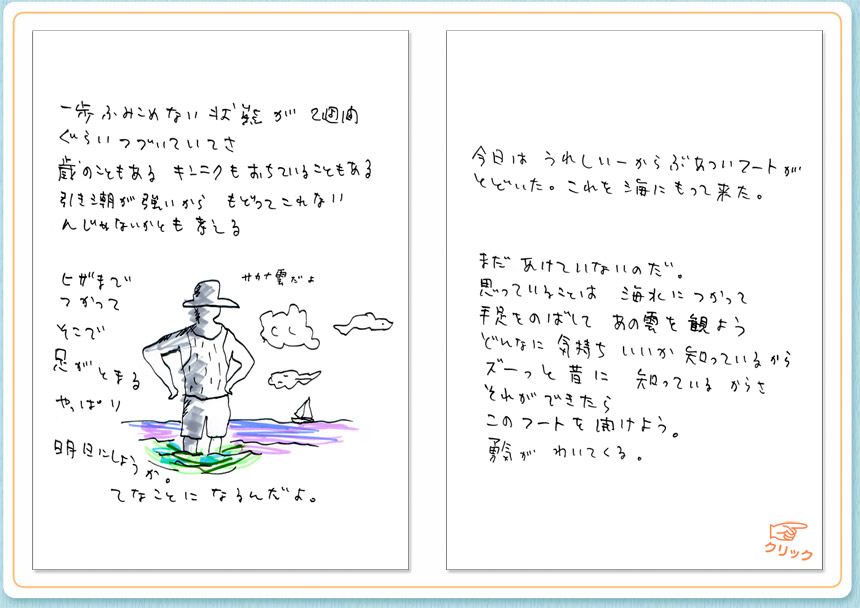 一歩ふみこめない状態が2週間
ぐらいつづいていてさ
歳のこともある キンニクもおちていることもある
引き潮が強いから もどってこれない
んじゃないかとも考える
ヒザまで
つかって
そこで
足がとまる
やっぱり
明日にしようか。
てなことに なるんだよ。
サカナ雲だよ
今日は うれしいーからぶあついフートが
とどいた。これを海にもって来た。
まだ あけていないのだ。
思っていることは 海水につかって
手足をのばして あの雲を観よう
どんなに 気持ち いいか 知っているから
ズーっと昔に 知っている からさ
それが できたら
このフートを開けよう。
勇気が わいてくる。
クリック